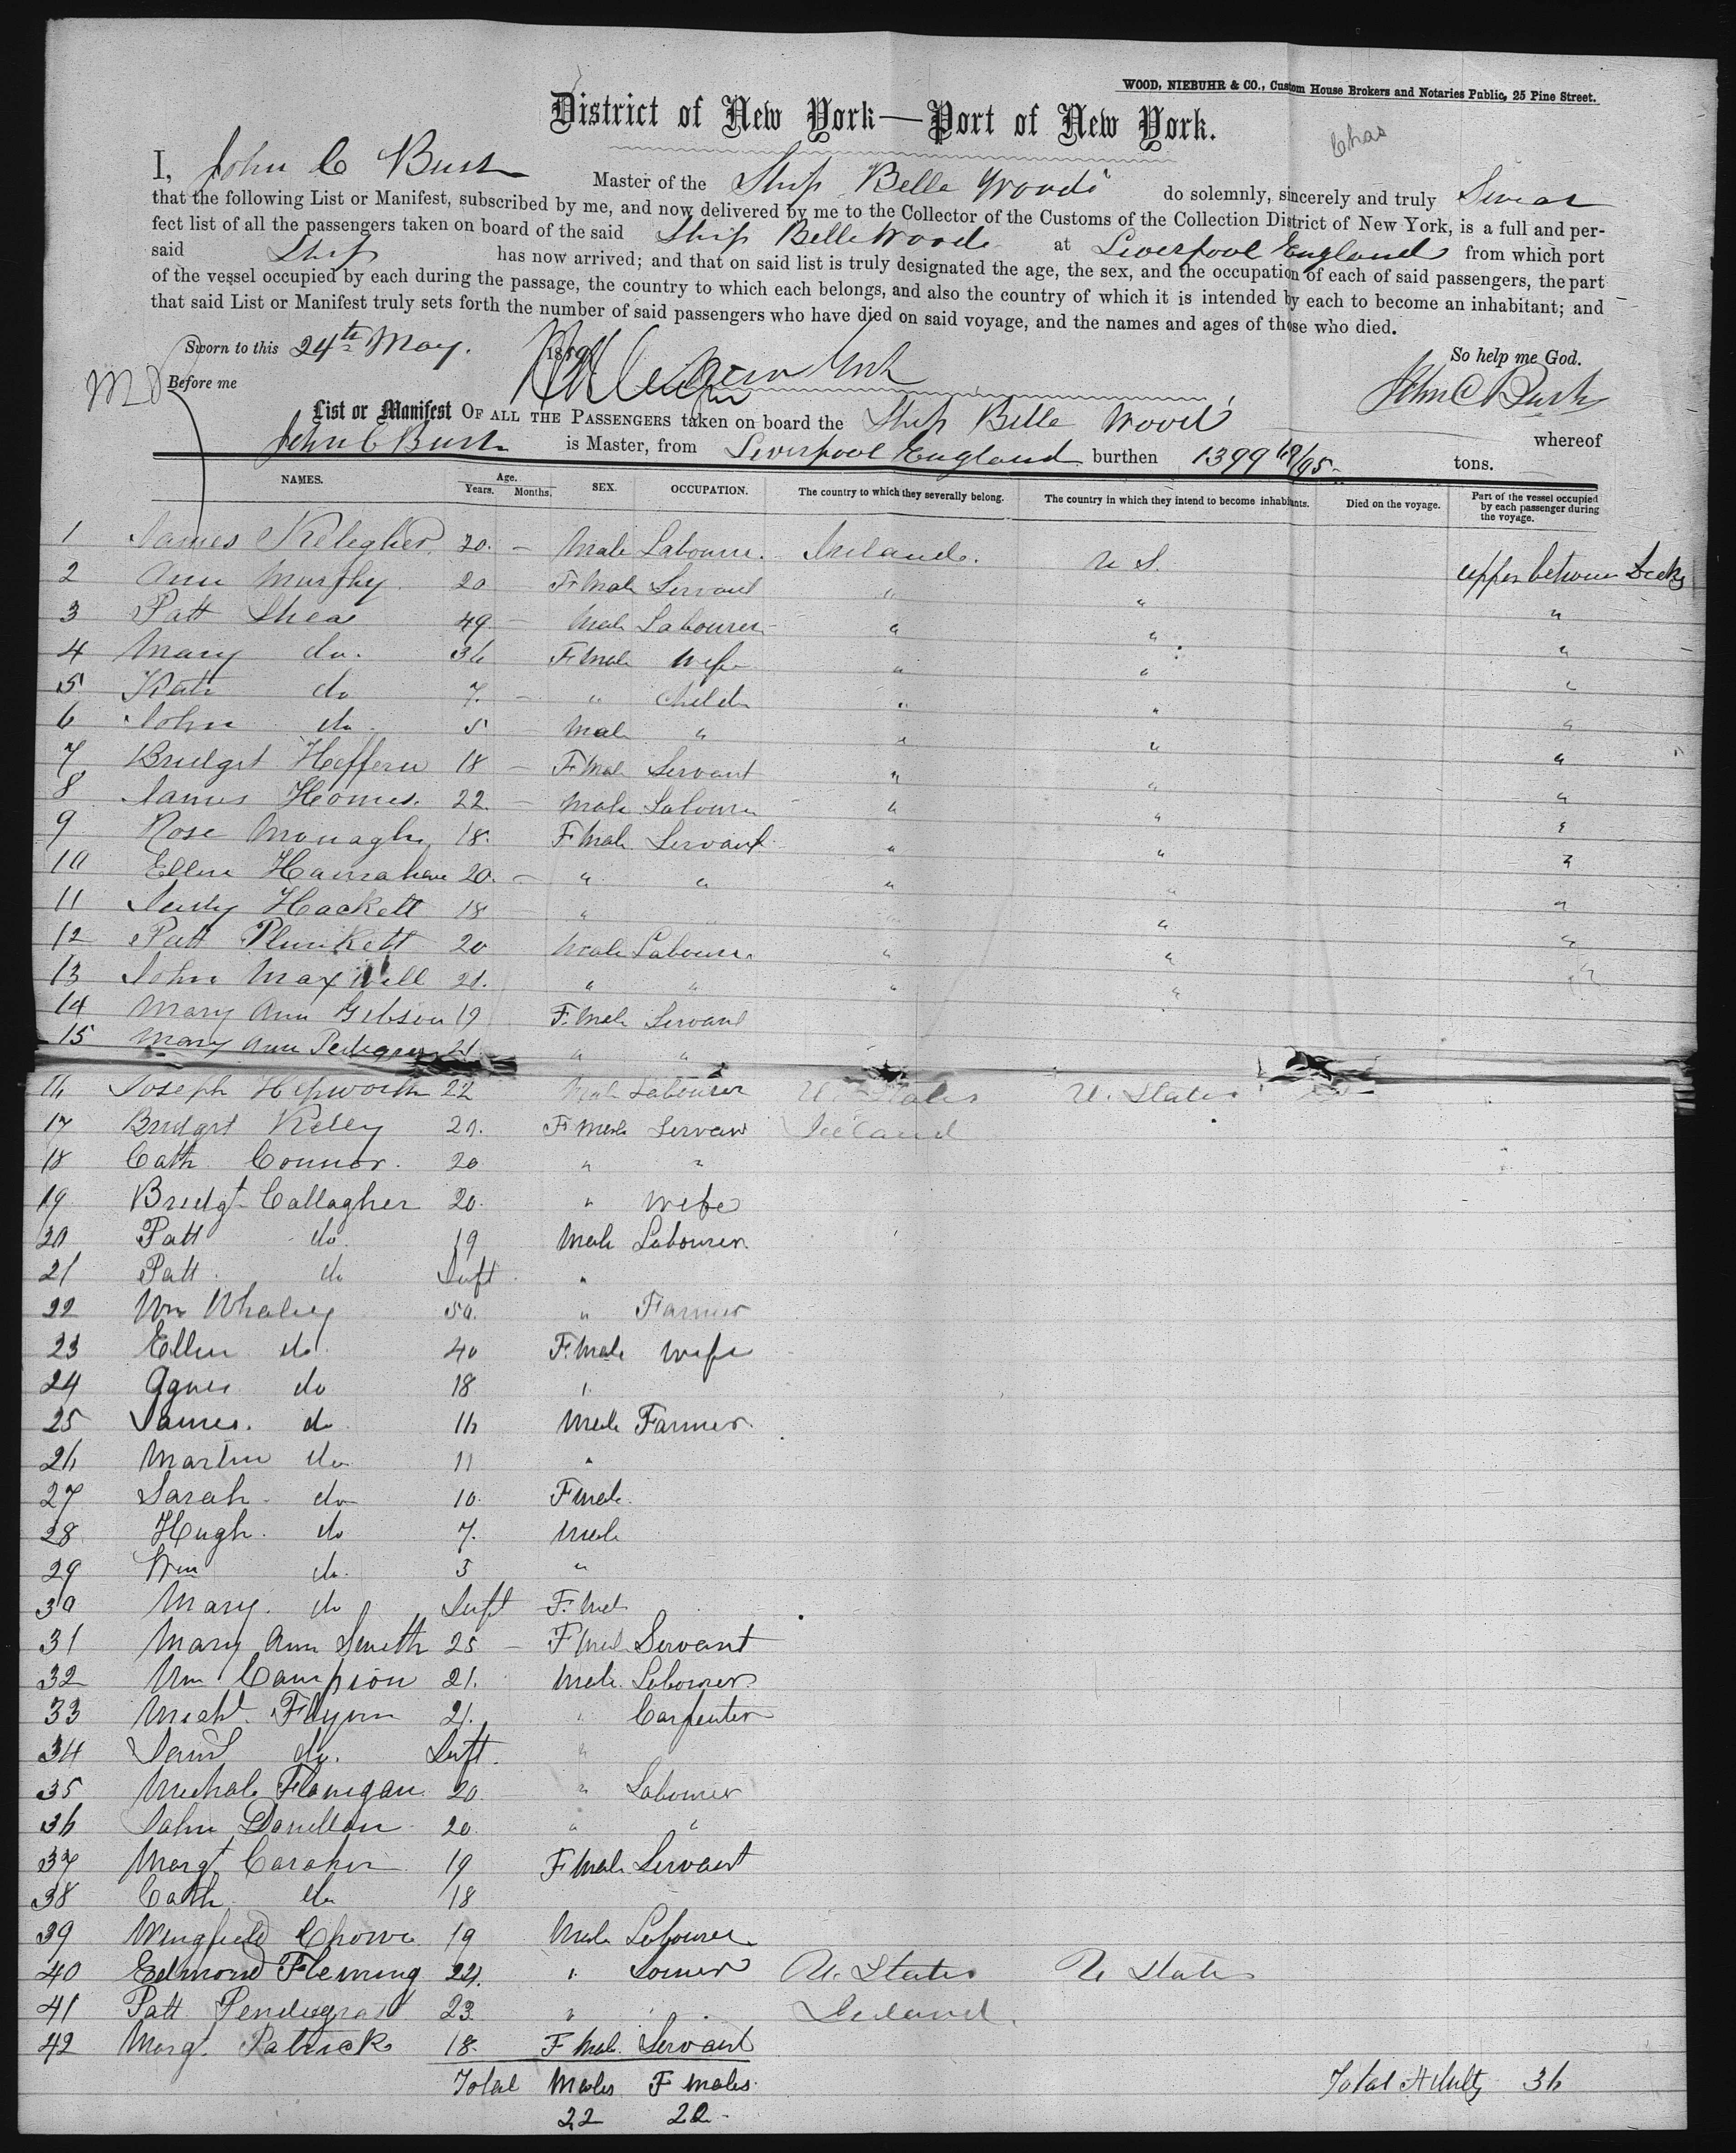 WOOD, NIEBUHR & CO., Custom House Brokers and Notaries Public, 25 Pine Street.
District of New York—Port of New York.
Chas
I, John C Bush Master of the Ship Belle Wood do solemnly, sincerely and truly Swear
that the following List or Manifest, subscribed by me, and now delivered by me to the Collector of the Customs of the Collection District of New York, is a full and per-
fect list of all the passengers taken on board of the said Ship Belle Wood at Liverpool England from which port
said Ship has now arrived; and that on said list is truly designated the age, the sex, and the occupation of each of said passengers, the part
of the vessel occupied by each during the passage, the country to which each belongs, and also the country of which it is intended by each to become an inhabitant; and
that said List or Manifest truly sets forth the number of said passengers who have died on said voyage, and the names and ages of those who died.
Sworn to this 24th May. 18
So help me God.
Before me
John C Bush
List or Manifest OF ALL THE PASSENGERS taken on board the Ship Belle Wood whereof
John C Bush is Master, from Liverpool England burthen 1399 tons.
NAMES. Age. Years. Months. SEX. OCCUPATION. The country to which they severally belong. The country in which they intend to become inhabitants. Died on the voyage. Part of the vessel occupied by each passenger during the voyage.
1 James Kelegher 20. – Male Labourer. Ireland. U S. upper between Decks
2 Ann Murphy 20 – F. Male Servant " " "
3 Patt Shea 49 – Male Labourer " " "
4 Mary do. 36 F Male Wife " " "
5 Kate do 7. – " Child " " "
6 John do 5 – Male " " " "
7 Bridget Heffern 18 – F Male Servant " " "
8 James Homes. 22. – Male Labourer " " "
9 Rose Monaghn 18. F Male Servant " " "
10 Ellen Hanrahan 20. – " " " " "
11 Judy Hackett 18 – " " "
12 Patt Plunkett 20 Male Labourer " " "
13 John Maxwell 21. " " " " "
14 Mary Ann Gibson 19 F. Male Servant
15 Mary Ann 21 " "
16 Joseph Hepworth 22 Male Labourer U. States U. States
17 Bridget Kelly 20. F Male Servant Ireland
18 Cath Connor. 20 " "
19 Bridgt Callagher 20. " Wife
20 Patt do. 19 Male Labourer
21 Patt do Inft "
22 Wm Whaley 50. " Farmer
23 Ellen do. 40 F. Male Wife
24 Agnes do 18 "
25 James. do 16 Male Farmer.
26 Martin do 11 "
27 Sarah do 10. F Male
28 Hugh do 7. Male
29 Wm do. 3 "
30 Mary. do Inft F. Male
31 Mary Ann Smith 25 – F Male Servant
32 Wm Campion 21. Male Labourer
33 Michl. Flynn 21. " Carpenter
34 do. Inft. "
35 Michale Flanigan 20. " Labourer
36 John Donellan 20. " "
37 Margt Caraher 19 F Male Servant
38 Cath do 18
39 Wingfield 19 Male Labourer
40 Edmond Fleming 24. " U. States U States
41 Patt Pendegrat 23. " Ireland.
42 Margt. Patrick 18. F Male. Servant
Total Males F males. Total Adults 36
22 20